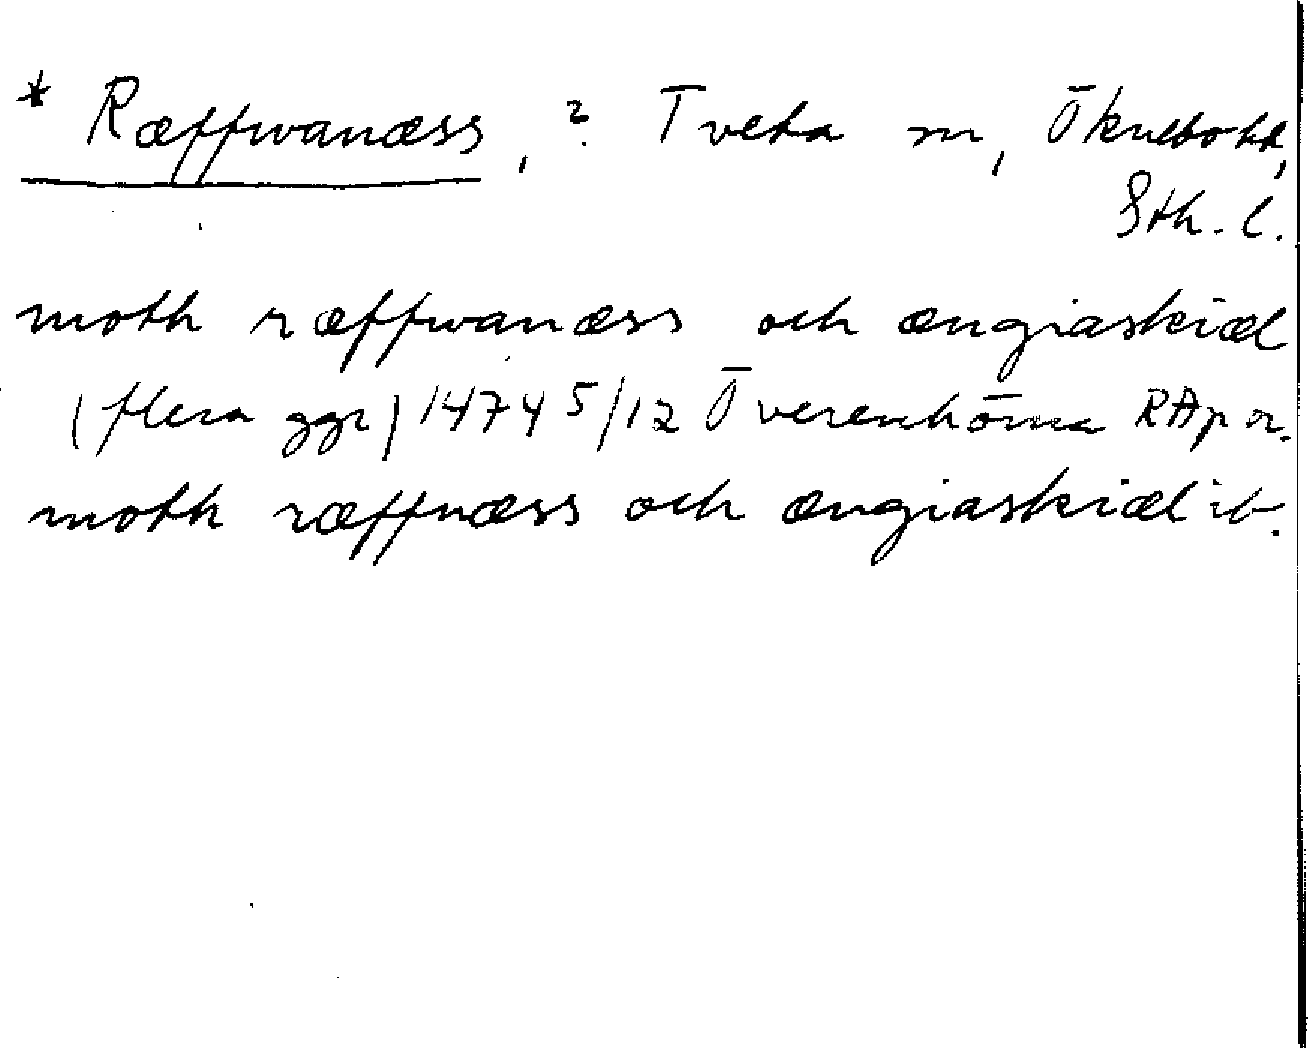 * Ræffwanæss, ? Tveta sn, Öknebo hd,
Sth. l.
moth ræffwanæss och ængiaskiæl
(flera ggr) 1474 5/12 Överenhörna RAp or.
moth ræffnæss och ængiaskiæl ib.